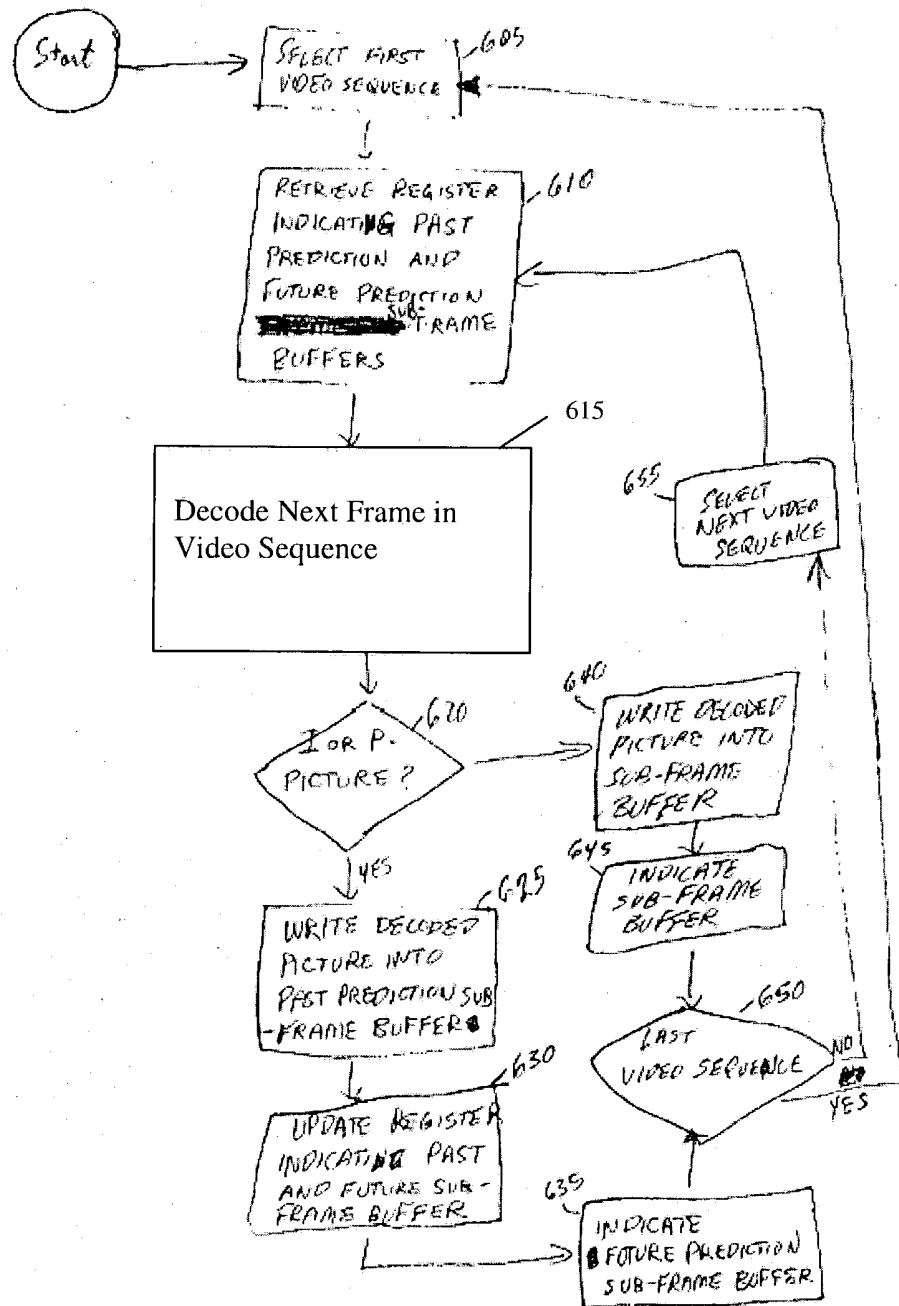 Start
SELECT FIRST
VIDEO SEQUENCE
605
RETRIEVE REGISTER
INDICATING PAST
PREDICTION AND
FUTURE PREDICTION
SUB-
FRAME
BUFFERS
610
615
Decode Next Frame in
Video Sequence
655
SELECT
NEXT VIDEO
SEQUENCE
I OR P-
PICTURE?
620
640
WRITE DECODED
PICTURE INTO
SUB-FRAME
BUFFER
645
INDICATE
SUB-FRAME
BUFFER
YES
625
WRITE DECODED
PICTURE INTO
PAST PREDICTION SUB
-FRAME BUFFER
650
LAST
VIDEO SEQUENCE
NO
YES
630
UPDATE REGISTER
INDICATING PAST
AND FUTURE SUB-
FRAME BUFFER
635
INDICATE
FUTURE PREDICTION
SUB-FRAME BUFFER